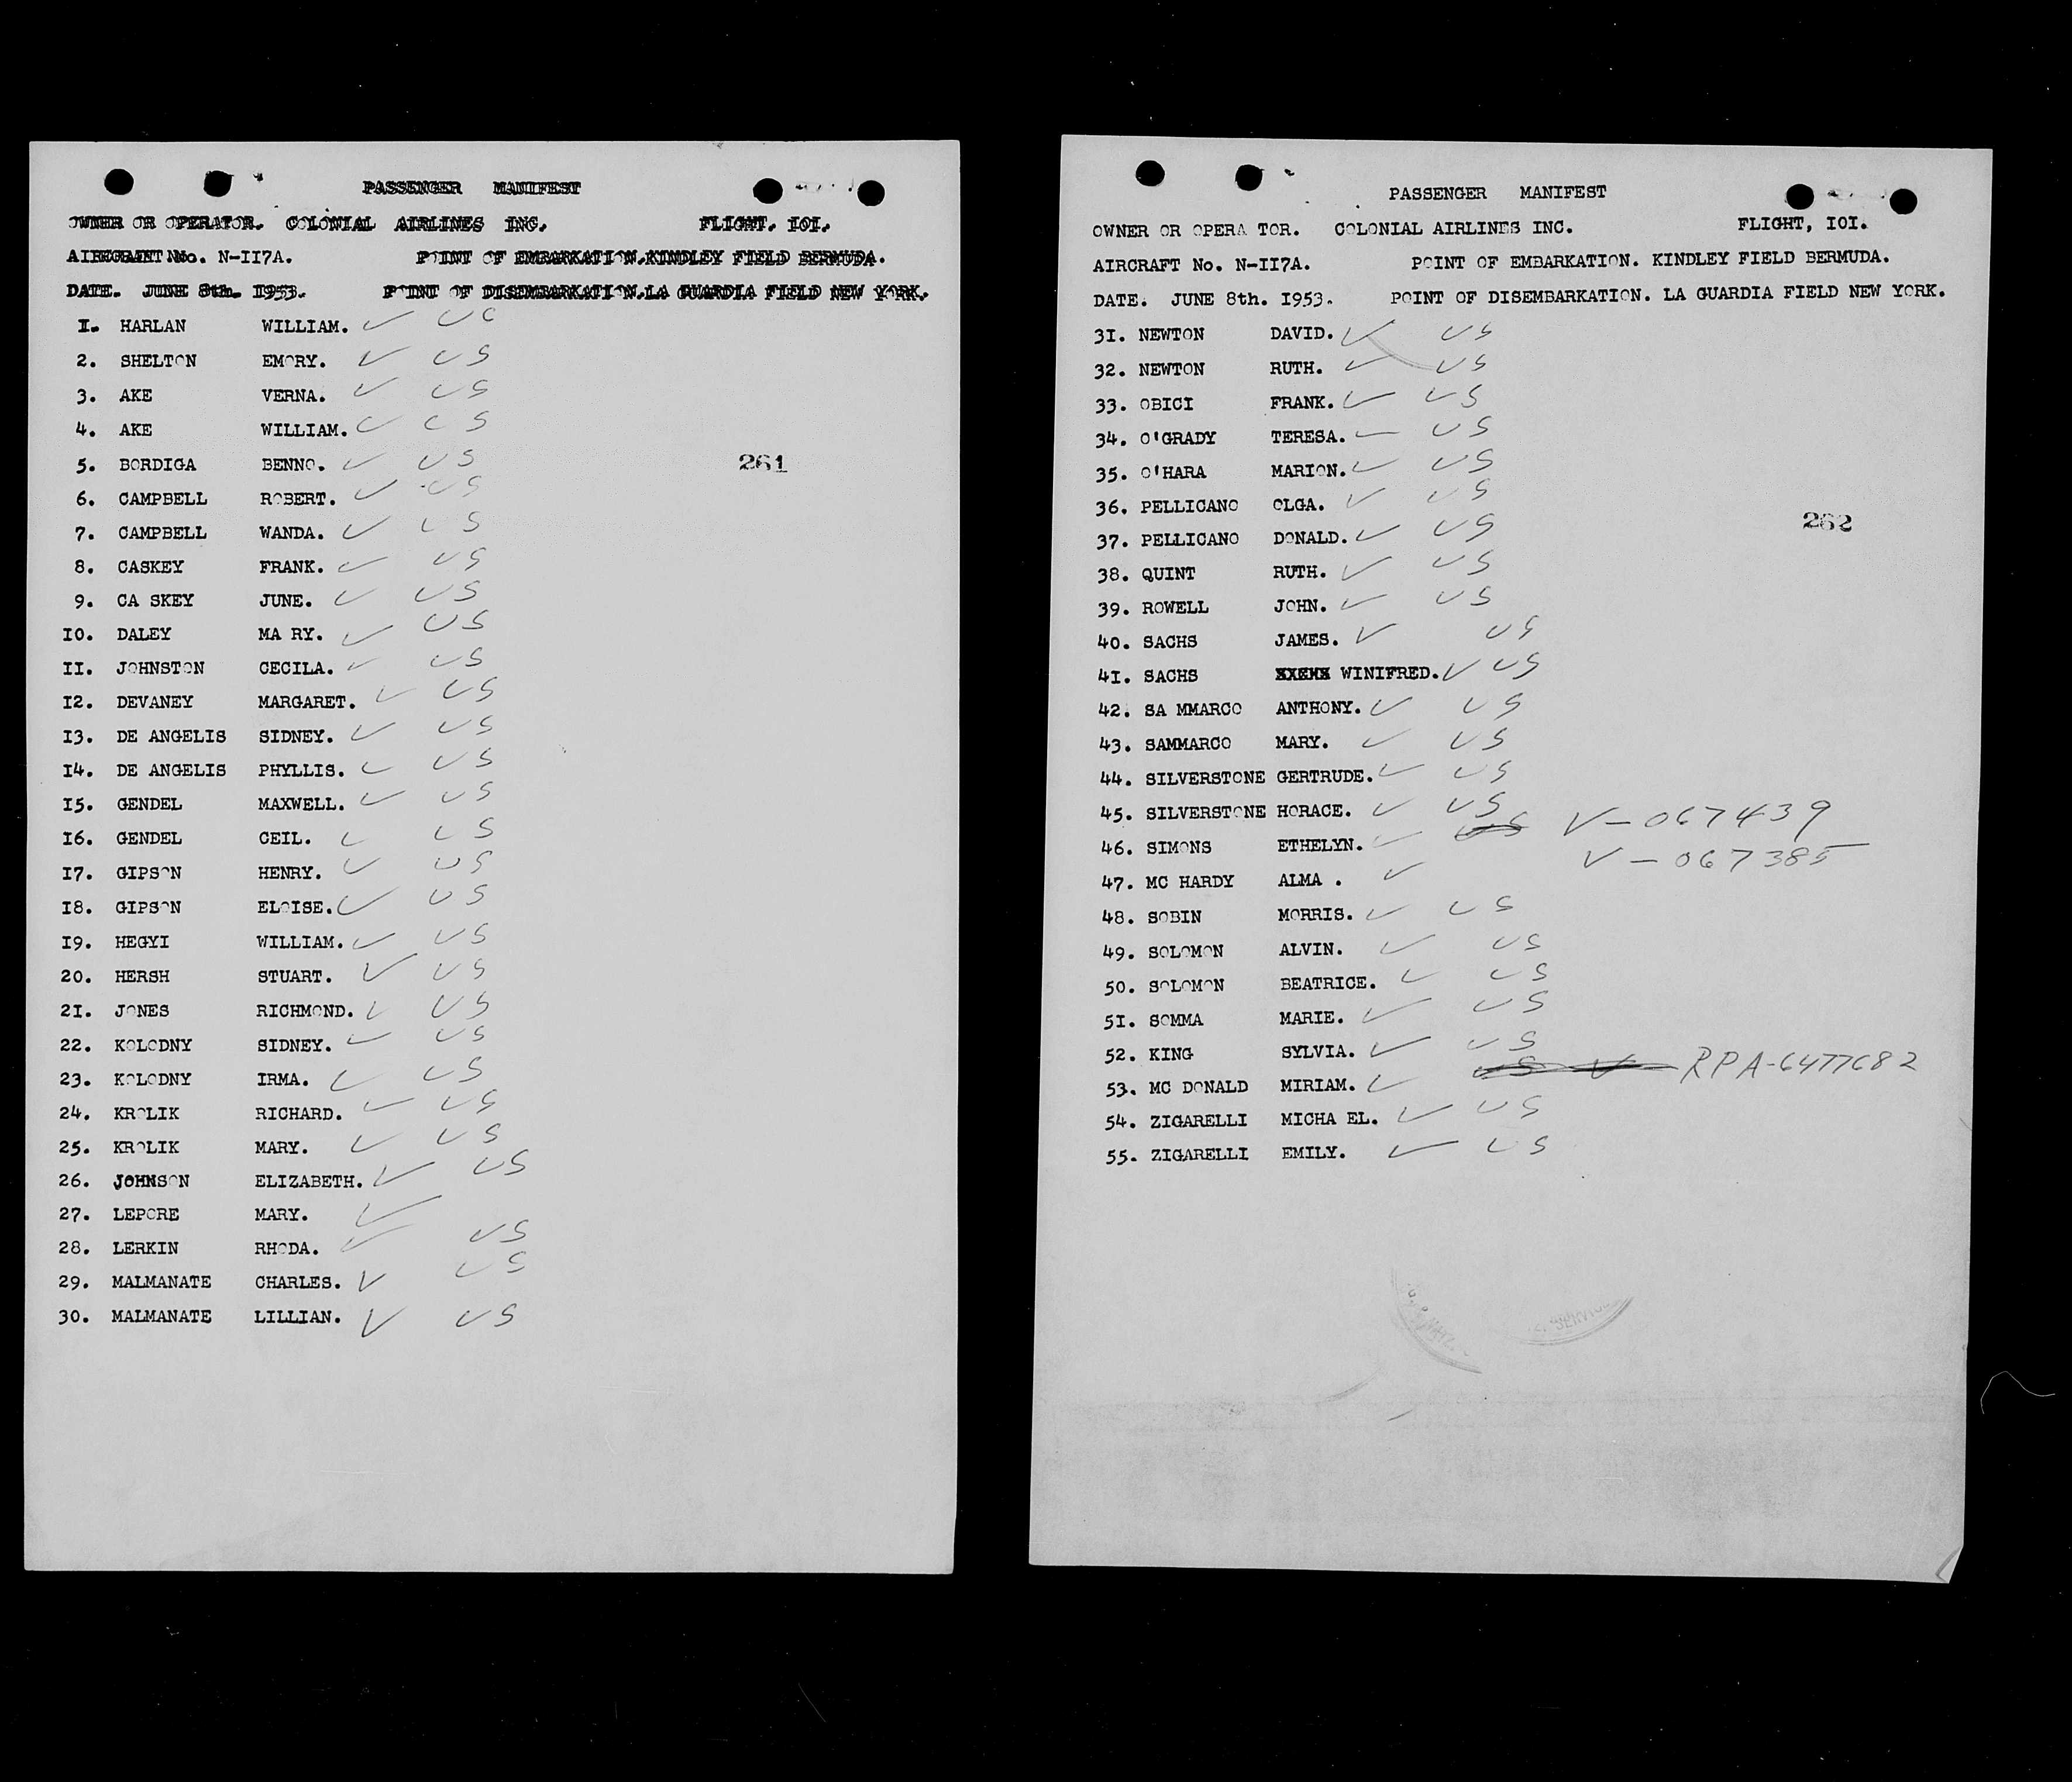 PASSENGER MANIFEST
OWNER OR OPERATOR. COLONIAL AIRLINES INC. FLIGHT. IOI.
AIRCRAFT No. N-II7A. POINT OF EMBARKATION.KINDLEY FIELD BERMUDA.
DATE. JUNE 8th. I953. POINT OF DISEMBARKATION.LA GUARDIA FIELD NEW YORK.
I. HARLAN WILLIAM. ✓ US
2. SHELTON EMORY. ✓ US
3. AKE VERNA. ✓ US
4. AKE WILLIAM. ✓ US
5. BORDIGA BENNO. ✓ US
261
6. CAMPBELL ROBERT. ✓ US
7. CAMPBELL WANDA. ✓ US
8. CASKEY FRANK. ✓ US
9. CA SKEY JUNE. ✓ US
I0. DALEY MA RY. ✓ US
II. JOHNSTON CECILA. ✓ US
I2. DEVANEY MARGARET. ✓ US
I3. DE ANGELIS SIDNEY. ✓ US
I4. DE ANGELIS PHYLLIS. ✓ US
I5. GENDEL MAXWELL. ✓ US
I6. GENDEL CEIL. ✓ US
I7. GIPSON HENRY. ✓ US
I8. GIPSON ELOISE. ✓ US
I9. HEGYI WILLIAM. ✓ US
20. HERSH STUART. ✓ US
2I. JONES RICHMOND. ✓ US
22. KOLODNY SIDNEY. ✓ US
23. KOLODNY IRMA. ✓ US
24. KROLIK RICHARD. ✓ US
25. KROLIK MARY. ✓ US
26. JOHNSON ELIZABETH. ✓ US
27. LEPORE MARY. ✓
28. LERKIN RHODA. ✓ US
29. MALMANATE CHARLES. ✓ US
30. MALMANATE LILLIAN. ✓ US
PASSENGER MANIFEST
OWNER OR OPERA TOR. COLONIAL AIRLINES INC. FLIGHT, IOI.
AIRCRAFT No. N-II7A. POINT OF EMBARKATION. KINDLEY FIELD BERMUDA.
DATE. JUNE 8th. I953. POINT OF DISEMBARKATION. LA GUARDIA FIELD NEW YORK.
3I. NEWTON DAVID. ✓ US
32. NEWTON RUTH. ✓ US
33. OBICI FRANK. ✓ US
34. O'GRADY TERESA. ✓ US
35. O'HARA MARION. ✓ US
36. PELLICANO OLGA. ✓ US
262
37. PELLICANO DONALD. ✓ US
38. QUINT RUTH. ✓ US
39. ROWELL JOHN. ✓ US
40. SACHS JAMES. ✓ US
4I. SACHS WINIFRED. ✓ US
42. SA MMARCO ANTHONY. ✓ US
43. SAMMARCO MARY. ✓ US
44. SILVERSTONE GERTRUDE. ✓ US
45. SILVERSTONE HORACE. ✓ US
46. SIMONS ETHELYN. ✓ US V-067439
47. MC HARDY ALMA . ✓ V-067385
48. SOBIN MORRIS. ✓ US
49. SOLOMON ALVIN. ✓ US
50. SOLOMON BEATRICE. ✓ US
5I. SOMMA MARIE. ✓ US
52. KING SYLVIA. ✓ US
53. MC DONALD MIRIAM. ✓ US V RPA-6477682
54. ZIGARELLI MICHA EL. ✓ US
55. ZIGARELLI EMILY. ✓ US